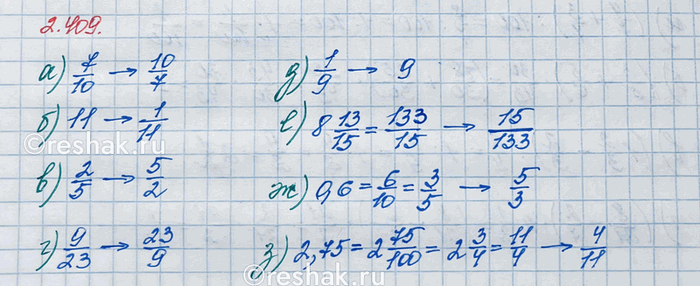 2.409.
а) 7/10 → 10/7
б) 11 → 1/11
в) 2/5 → 5/2
г) 9/23 → 23/9
д) 1/9 → 9
е) 8 13/15 = 133/15 → 15/133
ж) 0,6 = 6/10 = 3/5 → 5/3
з) 2,75 = 2 75/100 = 2 3/4 = 11/4 → 4/11
reshak.ru
reshak.ru
reshak.ru